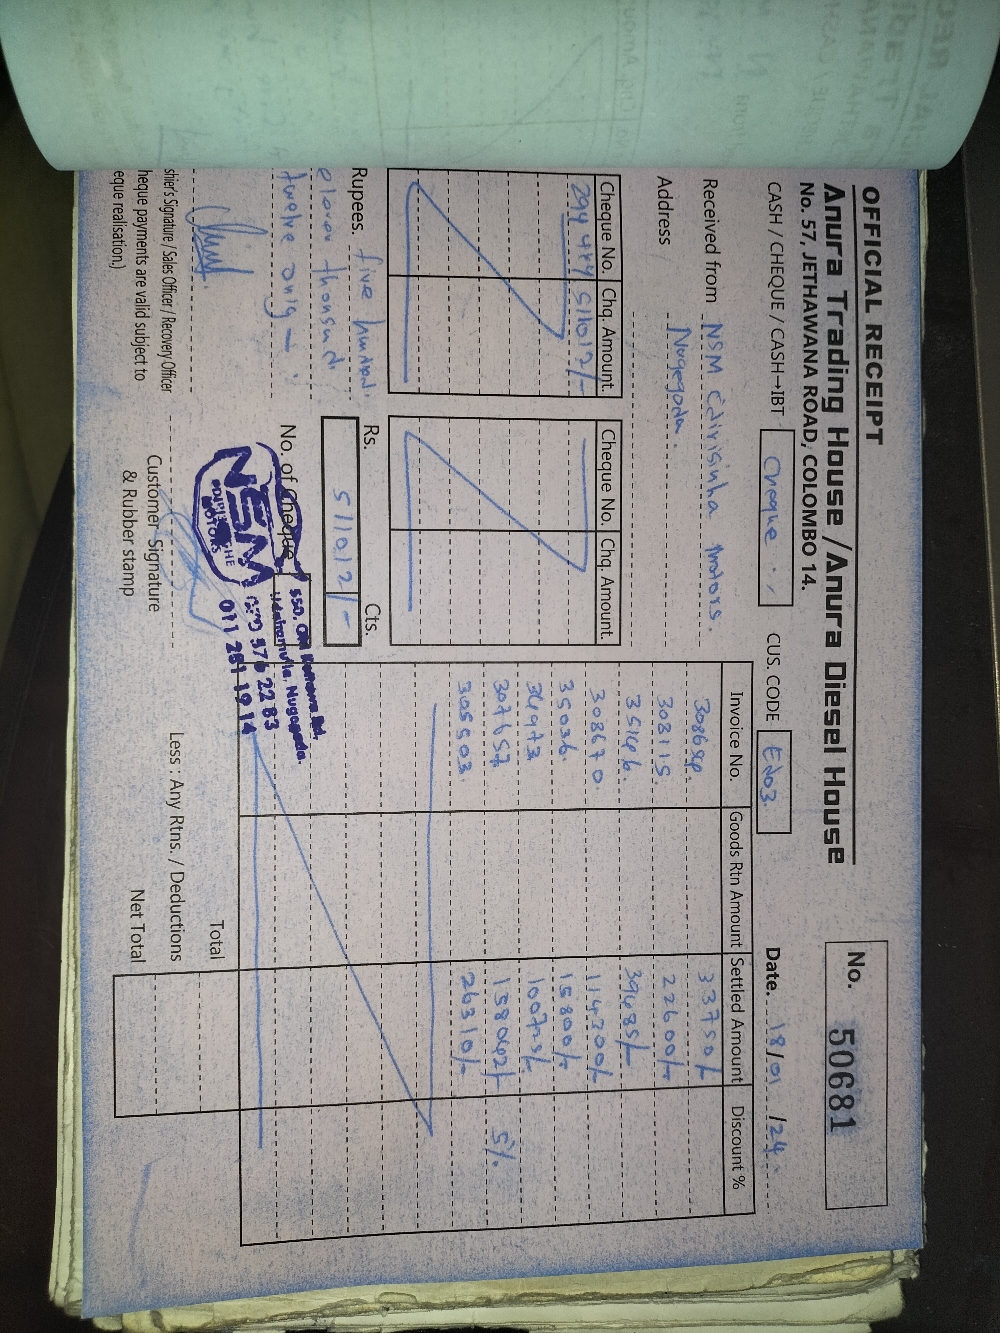 OFFICIAL RECEIPT
Anura Trading House / Anura Diesel House
No. 57, JETHAWANA ROAD, COLOMBO 14.
No. 50681
CASH / CHEQUE / CASH→IBT Cheque CUS. CODE E203 Date. 18/01/24
Received from NSM Edirisinha Motors.
Address Nugegoda.
Cheque No. Chq. Amount. Cheque No. Chq. Amount.
294484 511012/-
Rupees. five hundred
eleven thousand
twelve only
Rs. Cts.
511012/-
No. of Cheque
Invoice No. Goods Rtn Amount Settled Amount Discount %
33750/-
303115. 22600/-
35146. 39485/-
308670. 114300/-
35036. 15800/-
34973 100725/-
307657. 158042/- 5%.
305503. 26310/-
Total
Less : Any Rtns. / Deductions
Net Total
NSM
MOTORS
Nugegoda.
576 22 83
011 281 19 14
shier's Signature / Sales Officer / Recovery Officer
heque payments are valid subject to
eque realisation.)
Customer Signature
& Rubber stamp